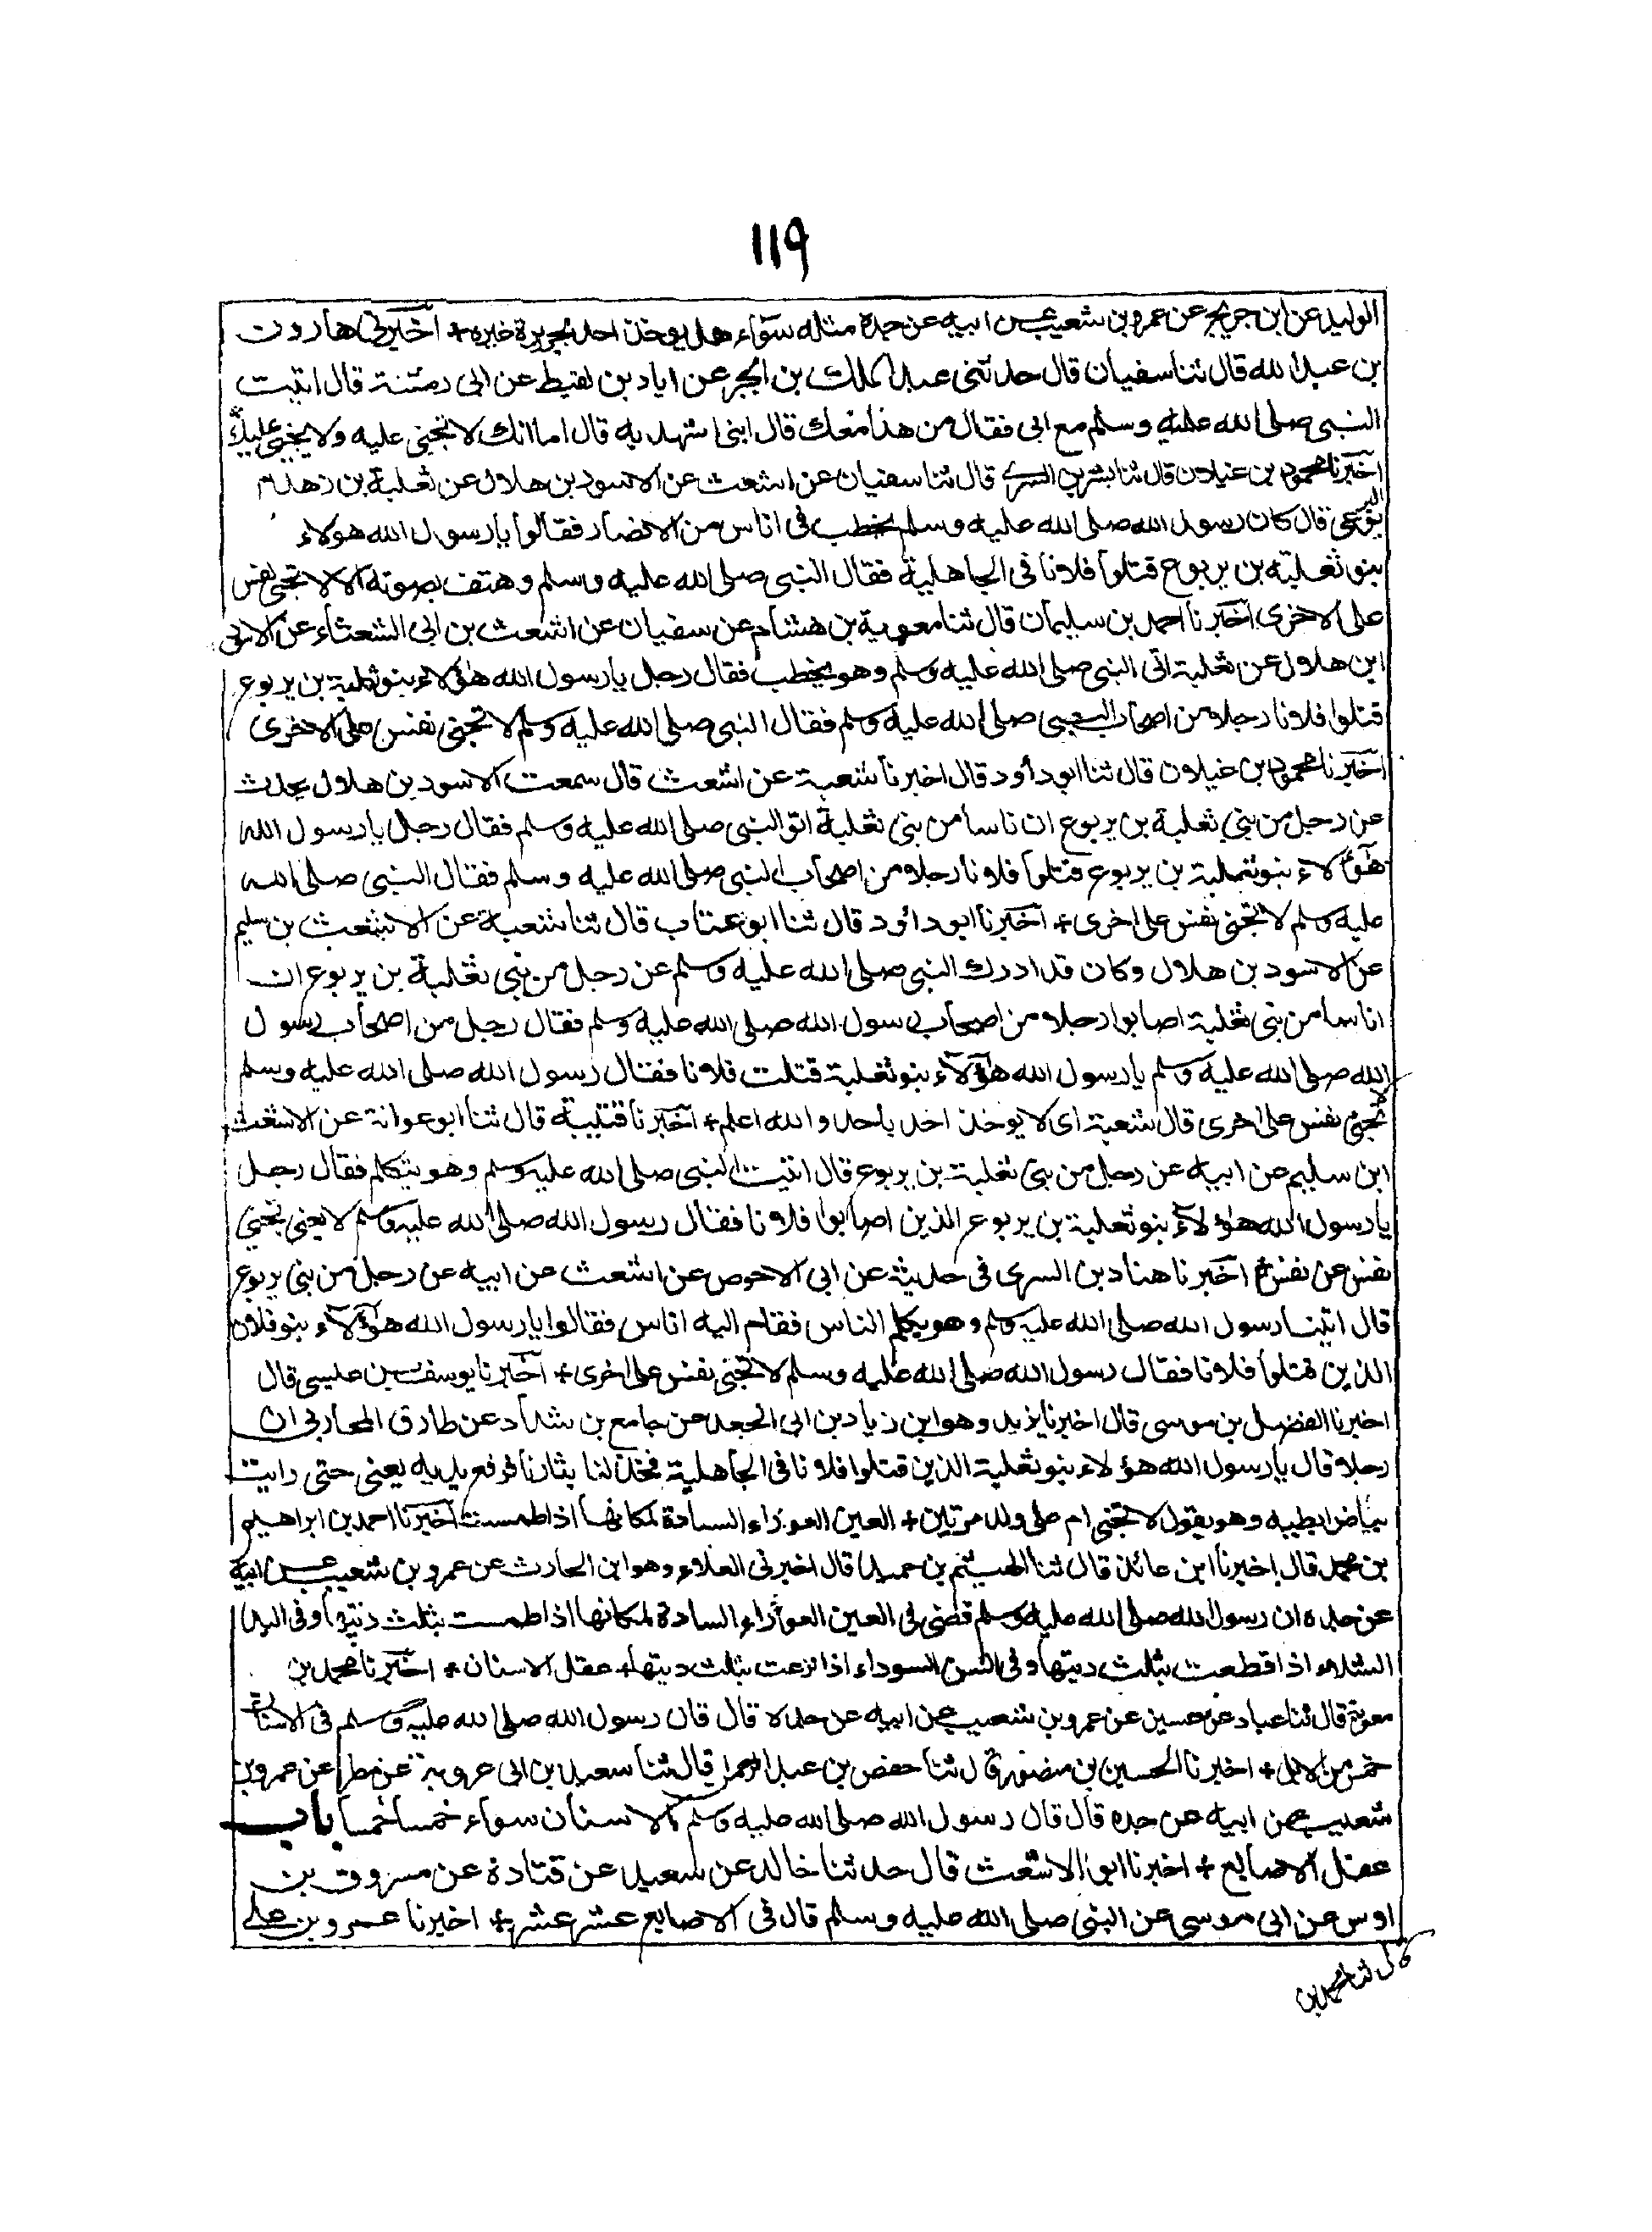 119
الوليد عن ابن جريج عن عمرو بن شعيب عن ابيه عن جده مثله سواء هل يوخذ احد بجريرة غيره + اخبرني هارون
بن عبد الله قال ثنا سفيان قال حدثني عبد الملك بن ابجر عن اياد بن لقيط عن ابي رمثة قال اتيت
النبي صلى الله عليه وسلم مع ابي فقال من هذا معك قال ابني اشهد به قال اما انك لا تجني عليه ولا يجني عليك
اخبرنا محمود بن غيلان قال ثنا بشر بن السري قال ثنا سفيان عن اشعث عن الاسود بن هلال عن ثعلبة بن زهدم
اليربوعي قال كان رسول الله صلى الله عليه وسلم يخطب في اناس من الانصار فقالوا يا رسول الله هولاء
بنو ثعلبة بن يربوع قتلوا فلانا في الجاهلية فقال النبي صلى الله عليه وسلم وهتف بصوته الا لا تجني نفس
على الاخرى اخبرنا احمد بن سليمان قال ثنا معوية بن هشام عن سفيان عن اشعث بن ابي الشعثاء عن الاسود
ابن هلال عن ثعلبة اتى النبي صلى الله عليه وسلم وهو يخطب فقال رجل يا رسول الله هؤلاء بنو ثعلبة بن يربوع
قتلوا فلانا رجلا من اصحاب النبي صلى الله عليه وسلم فقال النبي صلى الله عليه وسلم لا تجني نفس على الاخرى
اخبرنا محمود بن غيلان قال ثنا ابو داود قال اخبرنا شعبة عن اشعث قال سمعت الاسود بن هلال يحدث
عن رجل من بني ثعلبة بن يربوع ان ناسا من بني ثعلبة اتوا النبي صلى الله عليه وسلم فقال رجل يا رسول الله
هؤلاء بنو ثعلبة بن يربوع قتلوا فلانا رجلا من اصحاب النبي صلى الله عليه وسلم فقال النبي صلى الله
عليه وسلم لا تجني نفس على اخرى + اخبرنا ابو دائود قال ثنا ابو عتاب قال ثنا شعبة عن الاشعث بن سليم
عن الاسود بن هلال وكان قد ادرك النبي صلى الله عليه وسلم عن رجل من بني ثعلبة بن يربوع ان
اناسا من بني ثعلبة اصابوا رجلا من اصحاب رسول الله صلى الله عليه وسلم فقال رجل من اصحاب رسول
الله صلى الله عليه وسلم يا رسول الله هؤلاء بنو ثعلبة قتلت فلانا فقال رسول الله صلى الله عليه وسلم لا
تجني نفس على اخرى قال شعبة اي لا يوخذ احد باحد والله اعلم + اخبرنا قتيبة قال ثنا ابو عوانة عن الاشعث
ابن سليم عن ابيه عن رجل من بني ثعلبة بن يربوع قال اتيت النبي صلى الله عليه وسلم وهو يتكلم فقال رجل
يا رسول الله هؤلاء بنو ثعلبة بن يربوع الذين اصابوا فلانا فقال رسول الله صلى الله عليه وسلم لا يعني تجني
نفس عن نفس + اخبرنا هناد بن السري في حديثه عن ابي الاحوص عن اشعث عن ابيه عن رجل من بني يربوع
قال اتينا رسول الله صلى الله عليه وسلم وهو يكلم الناس فقام اليه اناس فقالوا يا رسول الله هؤلاء بنو فلان
الذين قتلوا فلانا فقال رسول الله صلى الله عليه وسلم لا تجني نفس على اخرى + اخبرنا يوسف بن عليسى قال
اخبرنا الفضل بن موسى قال اخبرنا يزيد وهو ابن زياد بن ابي الجعد عن جامع بن شداد عن طارق المحاربي ان
رجلا قال يا رسول الله هؤلاء بنو ثعلبة الذين قتلوا فلانا في الجاهلية فخذ لنا بثارنا فرفع يديه يعني حتى رايت
بياض ابطيه وهو يقول لا تجني ام على ولد مرتين + العين العوراء السادة لمكانها اذا طمست اخبرنا احمد بن ابراهيم
بن محمد قال اخبرنا ابن عائذ قال ثنا الهيثم بن حميد قال اخبرني العلاء وهو ابن الحارث عن عمرو بن شعيب عن ابيه
عن جده ان رسول الله صلى الله عليه وسلم قضى في العين العوراء السادة لمكانها اذا طمست بثلث ديتها وفي اليد
الشلاء اذا قطعت بثلث ديتها وفي السن السوداء اذا نزعت بثلث ديتها + عقل الاسنان + اخبرنا محمد بن
معوية قال ثنا عباد عن حسين عن عمرو بن شعيب عن ابيه عن جده قال قال رسول الله صلى الله عليه وسلم في الاسنان
خمس من الابل + اخبرنا الحسين بن منصور قال ثنا حفص بن عبد الرحمن قال ثنا سعيد بن ابي عروبة عن مطر عن عمرو بن
شعيب عن ابيه عن جده قال قال رسول الله صلى الله عليه وسلم الاسنان سواء خمسا خمسا باب
عقل الاصابع + اخبرنا ابو الاشعث قال حدثنا خالد عن سعيد عن قتادة عن مسروق بن
اوس عن ابي موسى عن النبي صلى الله عليه وسلم قال في الاصابع عشر عشر + اخبرنا عمرو بن علي
قال ثنا محمد بن